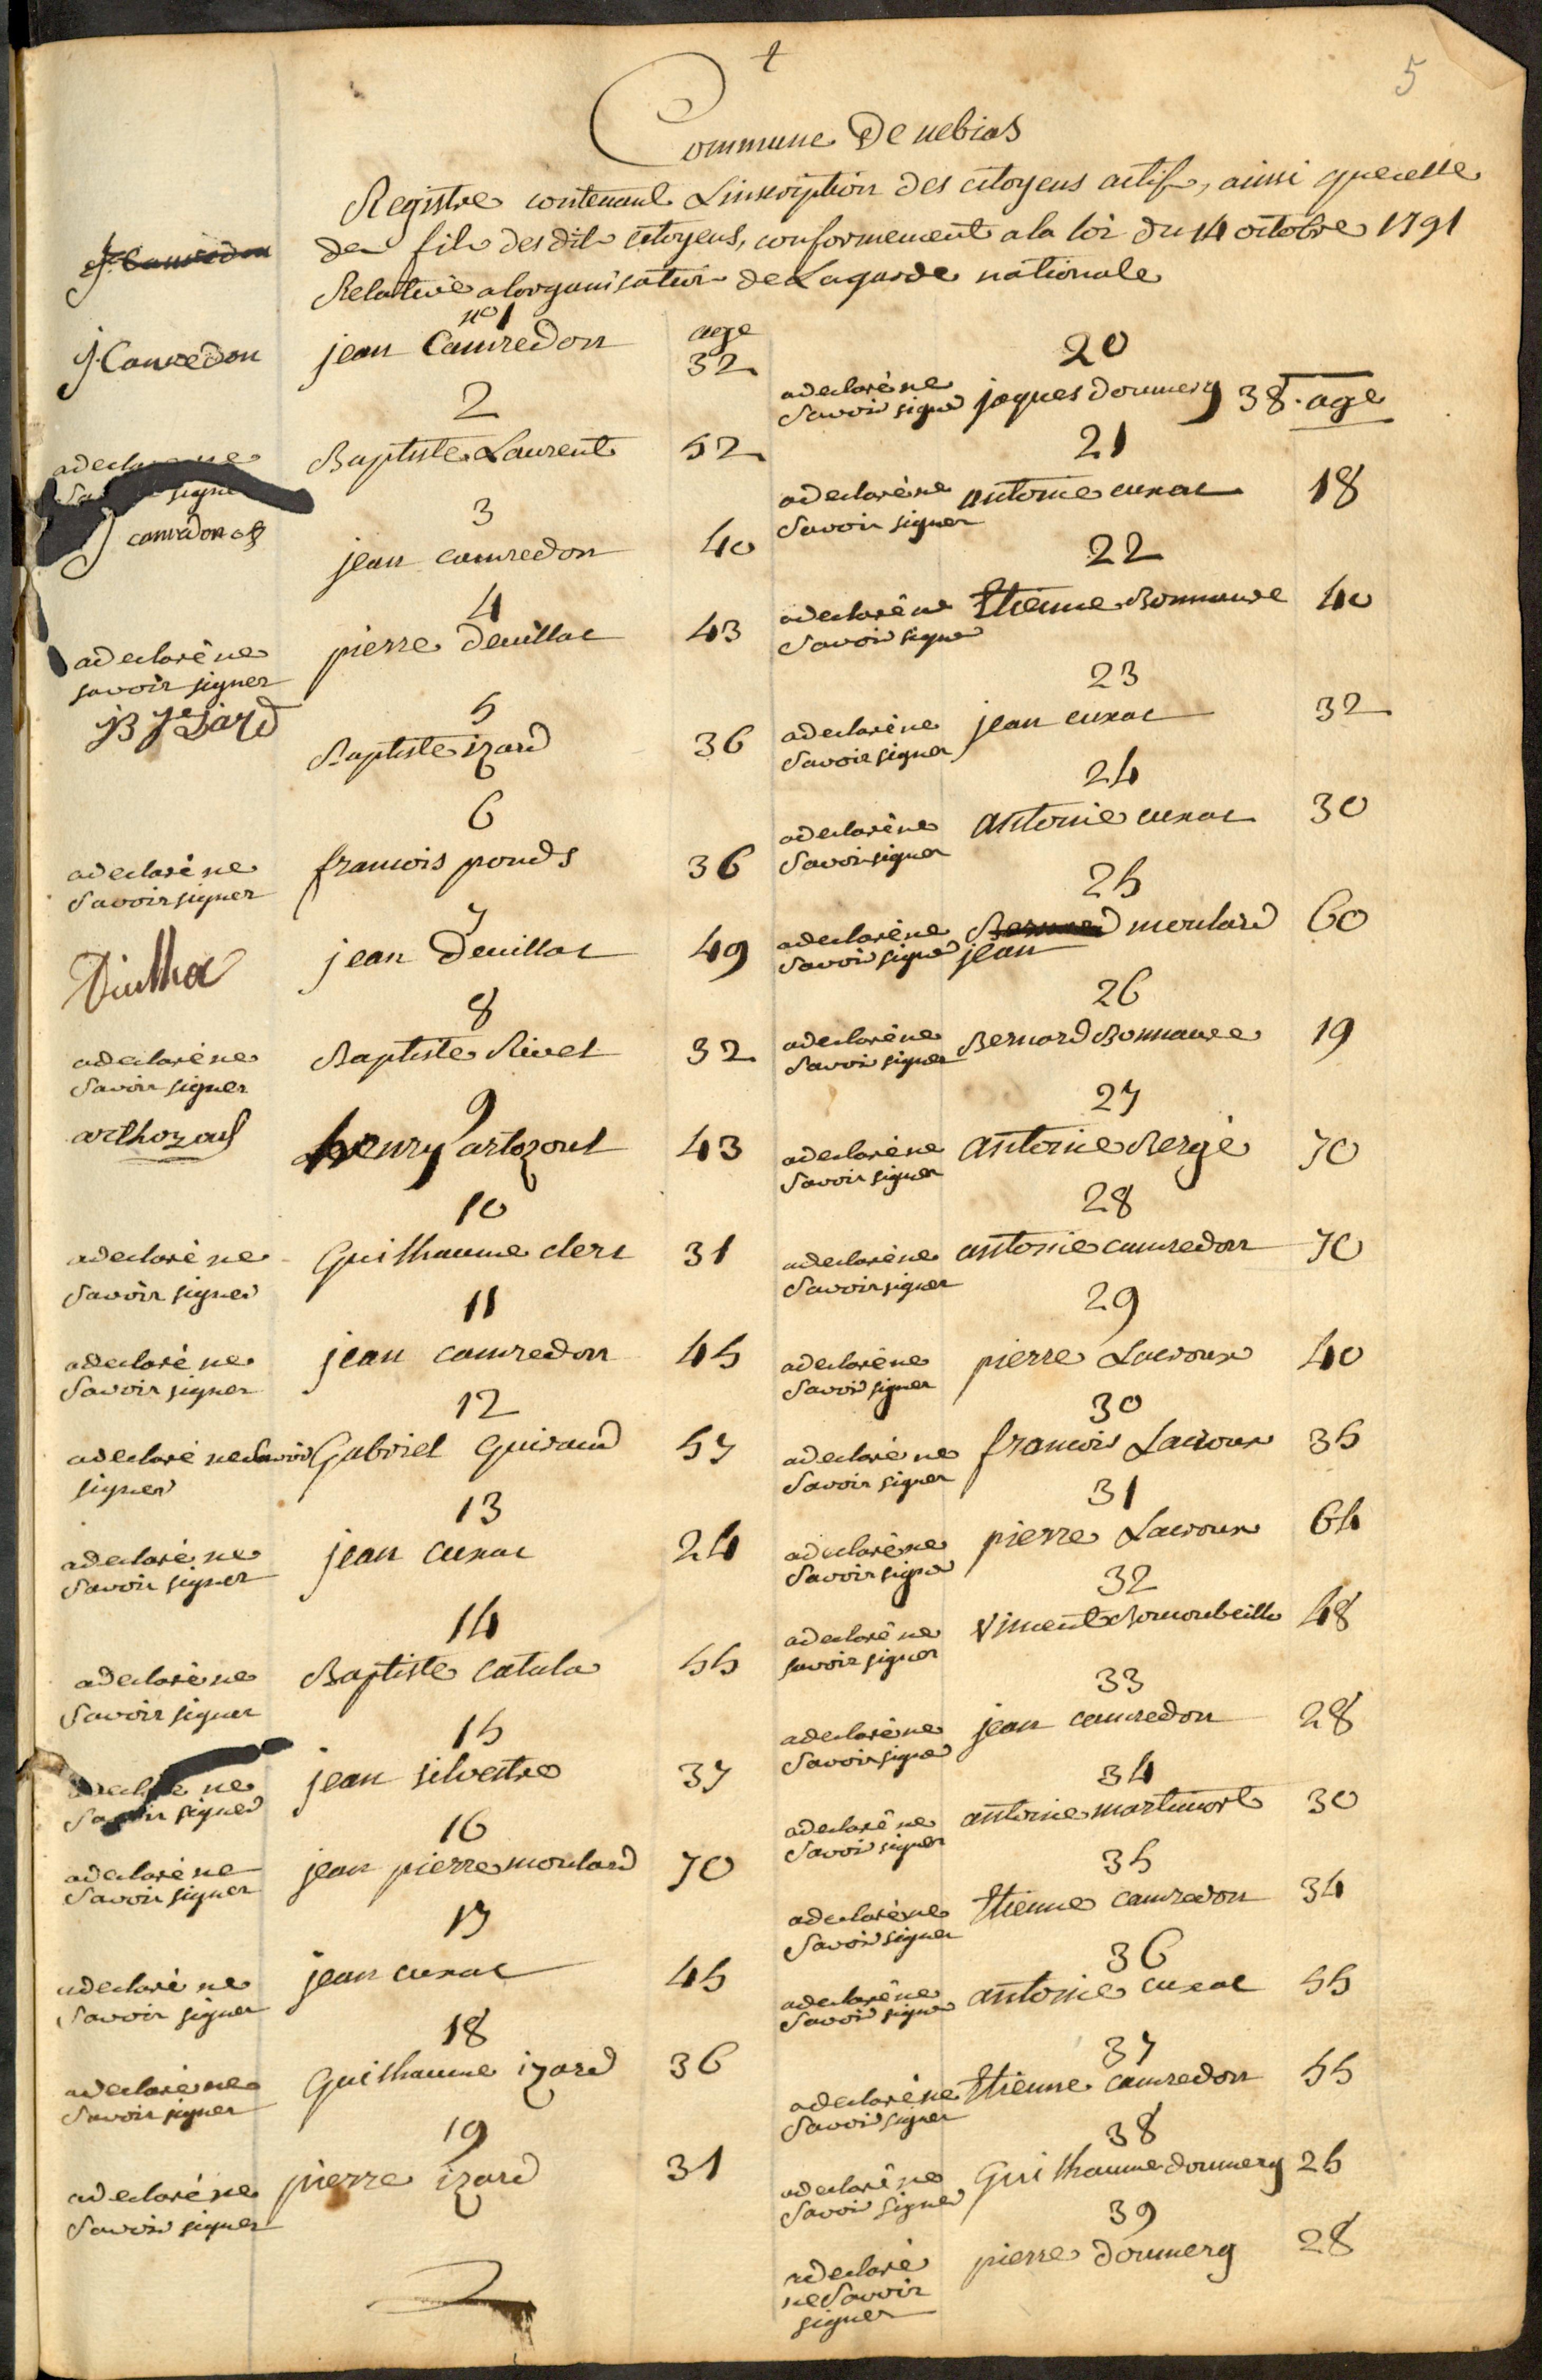 5
Commune De nebias
Registre contenant Linscription des citoyens actifs, ainsi que celle
des fils des dits citoyens, conformement a la loi du 14 octobre 1791
Relative alorganisation de Lagarde nationale
J. Camredon
n° 1
age
J. Camredon jean Camredon 32
2
adeclare ne
Savoir signer
Baptiste Laurent 52
3
J camredon
jean camredon 40
4
adeclaré ne
savoir signer
pierre Deuillac 43
5
Baptiste izard 36
6
adeclaré ne
Savoir signer
francois ponds 36
7
jean Deuillac 49
8
adeclaré ne
Savoir signer
Baptiste Rivel 32
9
arthozoul
henry artozoul 43
10
adeclaré ne
Savoir signer
Guilhaume clerc 31
11
adeclaré ne
Savoir signer
jean camredon 45
12
adeclaré ne Savoir
signer
Gabriel Guiraud 57
13
adeclaré ne
Savoir signer
jean cuxac 24
14
adeclaré ne
Savoir signer
Baptiste catala 55
15
adeclaré ne
Savoir signer
jean silvestre 37
16
adeclaré ne
Savoir signer
jean pierre moulard 70
17
adeclaré ne
Savoir signer
jean cuxac 45
18
adeclaré ne
Savoir signer
Guilhaume izard 36
19
adeclaré ne
Savoir signer
pierre izard 31
20
adeclaré ne
Savoir signer
jaques doumerg 38. age
21
adeclaré ne
Savoir signer
antoine cuxac 18
22
adeclaré ne
Savoir signer
Etienne Bonnaure 40
23
adeclaré ne
Savoir signer
jean cuxac 32
24
adeclaré ne
Savoir signer
antoine cuxac 30
25
adeclaré ne
Savoir signer
Bernard moulard 60
jean
26
adeclaré ne
Savoir signer
Bernard Bonnaure 19
27
adeclaré ne
Savoir signer
antoine Bergé 70
28
adeclaré ne
Savoir signer
antoine camredon 70
29
adeclaré ne
Savoir signer
pierre Lacroux 40
30
adeclaré ne
Savoir signer
francois Lacroux 35
31
adeclaré ne
Savoir signer
pierre Lacroux 64
32
adeclaré ne
savoir signer
48
33
adeclaré ne
Savoir signer
jean camredon 28
34
adeclaré ne
Savoir signer
antoine martimort 30
35
adeclaré ne
Savoir signer
Etienne camredon 34
36
adeclaré ne
Savoir signer
antoine cuxac 55
37
adeclaré ne
Savoir signer
Etienne camredon 55
38
adeclaré ne
Savoir signer
Guilhaume doumerg 25
39
adeclaré
ne Savoir
signer
pierre doumerg 28